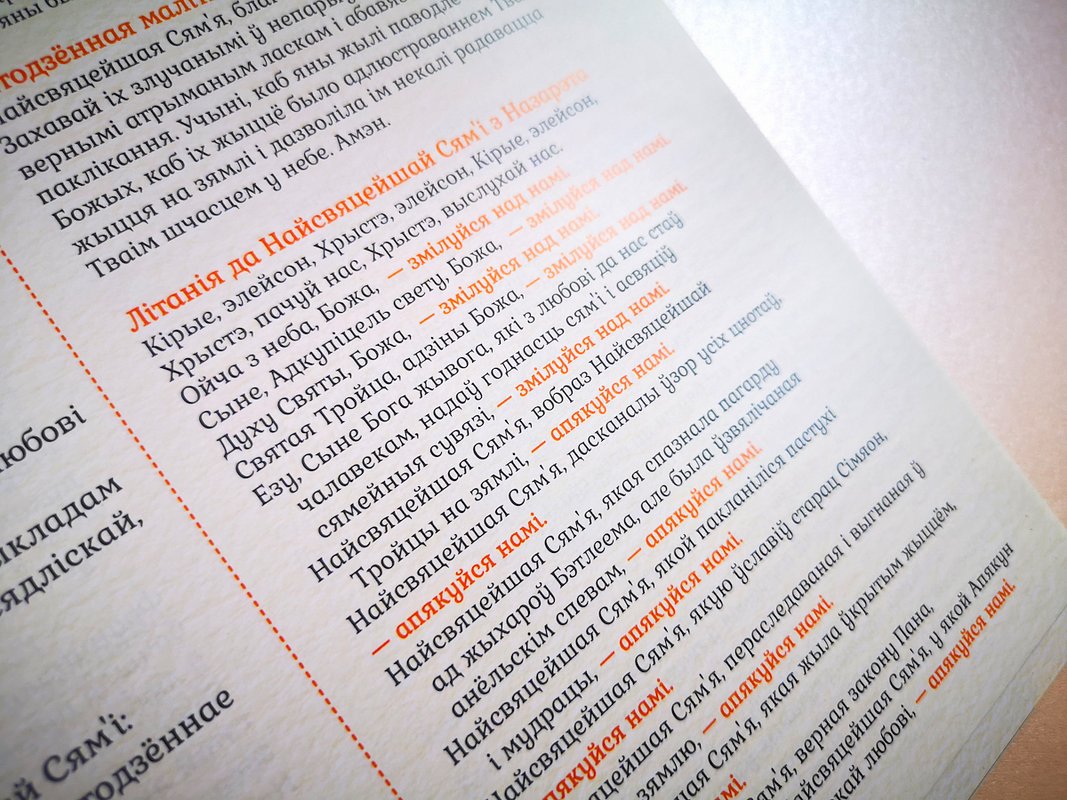 любові
ыкладам
ядліскай,
й Сям'і:
годзённае
яны
тодзённая малі
Найсвяцейшая Сям'я, бла
Захавай іх злучанымі ў непары
вернымі атрыманым ласкам і абавя
паклікання. Учыні, каб яны жылі паводле
Божых, каб іх жыццё было адлюстраваннем Тв
жыцця на зямлі і дазволіла ім некалі радавацца
Тваім шчасцем у небе. Амэн.
Літанія да Найсвяцейшай Сям'і з Назарэта
Кірые, элейсон, Хрыстэ, элейсон, Кірые, элейсон,
Хрыстэ, пачуй нас, Хрыстэ, выслухай нас.
Ойча з неба, Божа, – змілуйся над намі.
Сыне, Адкупіцель свету, Божа, – змілуйся над намі.
Духу Святы, Божа, – змілуйся над намі.
Святая Тройца, адзіны Божа, – змілуйся над намі.
Езу, Сыне Бога жывога, які з любові да нас стаў
чалавекам, надаў годнасць сям'і і асвяціў
сямейныя сувязі, – змілуйся над намі.
Найсвяцейшая Сям'я, вобраз Найсвяцейшай
Тройцы на зямлі, – апякуйся намі.
Найсвяцейшая Сям'я, дасканалы ўзор усіх цнотаў,
– апякуйся намі.
Найсвяцейшая Сям'я, якая спазнала пагарду
ад жыхароў Бэтлеема, але была ўзвялічаная
анёльскім спевам, – апякуйся намі.
Найсвяцейшая Сям'я, якой пакланіліся пастухі
і мудрацы, – апякуйся намі.
Найсвяцейшая Сям'я, якую ўславіў старац Сімяон,
апякуйся намі.
яцейшая Сям'я, пераследаваная і выгнаная ў
зямлю, – апякуйся намі.
шая Сям'я, якая жыла ўкрытым жыццём,
намі.
Сям'я, верная закону Пана,
айсвяцейшая Сям'я, у якой Апякун
кай любові, – апякуйся намі.